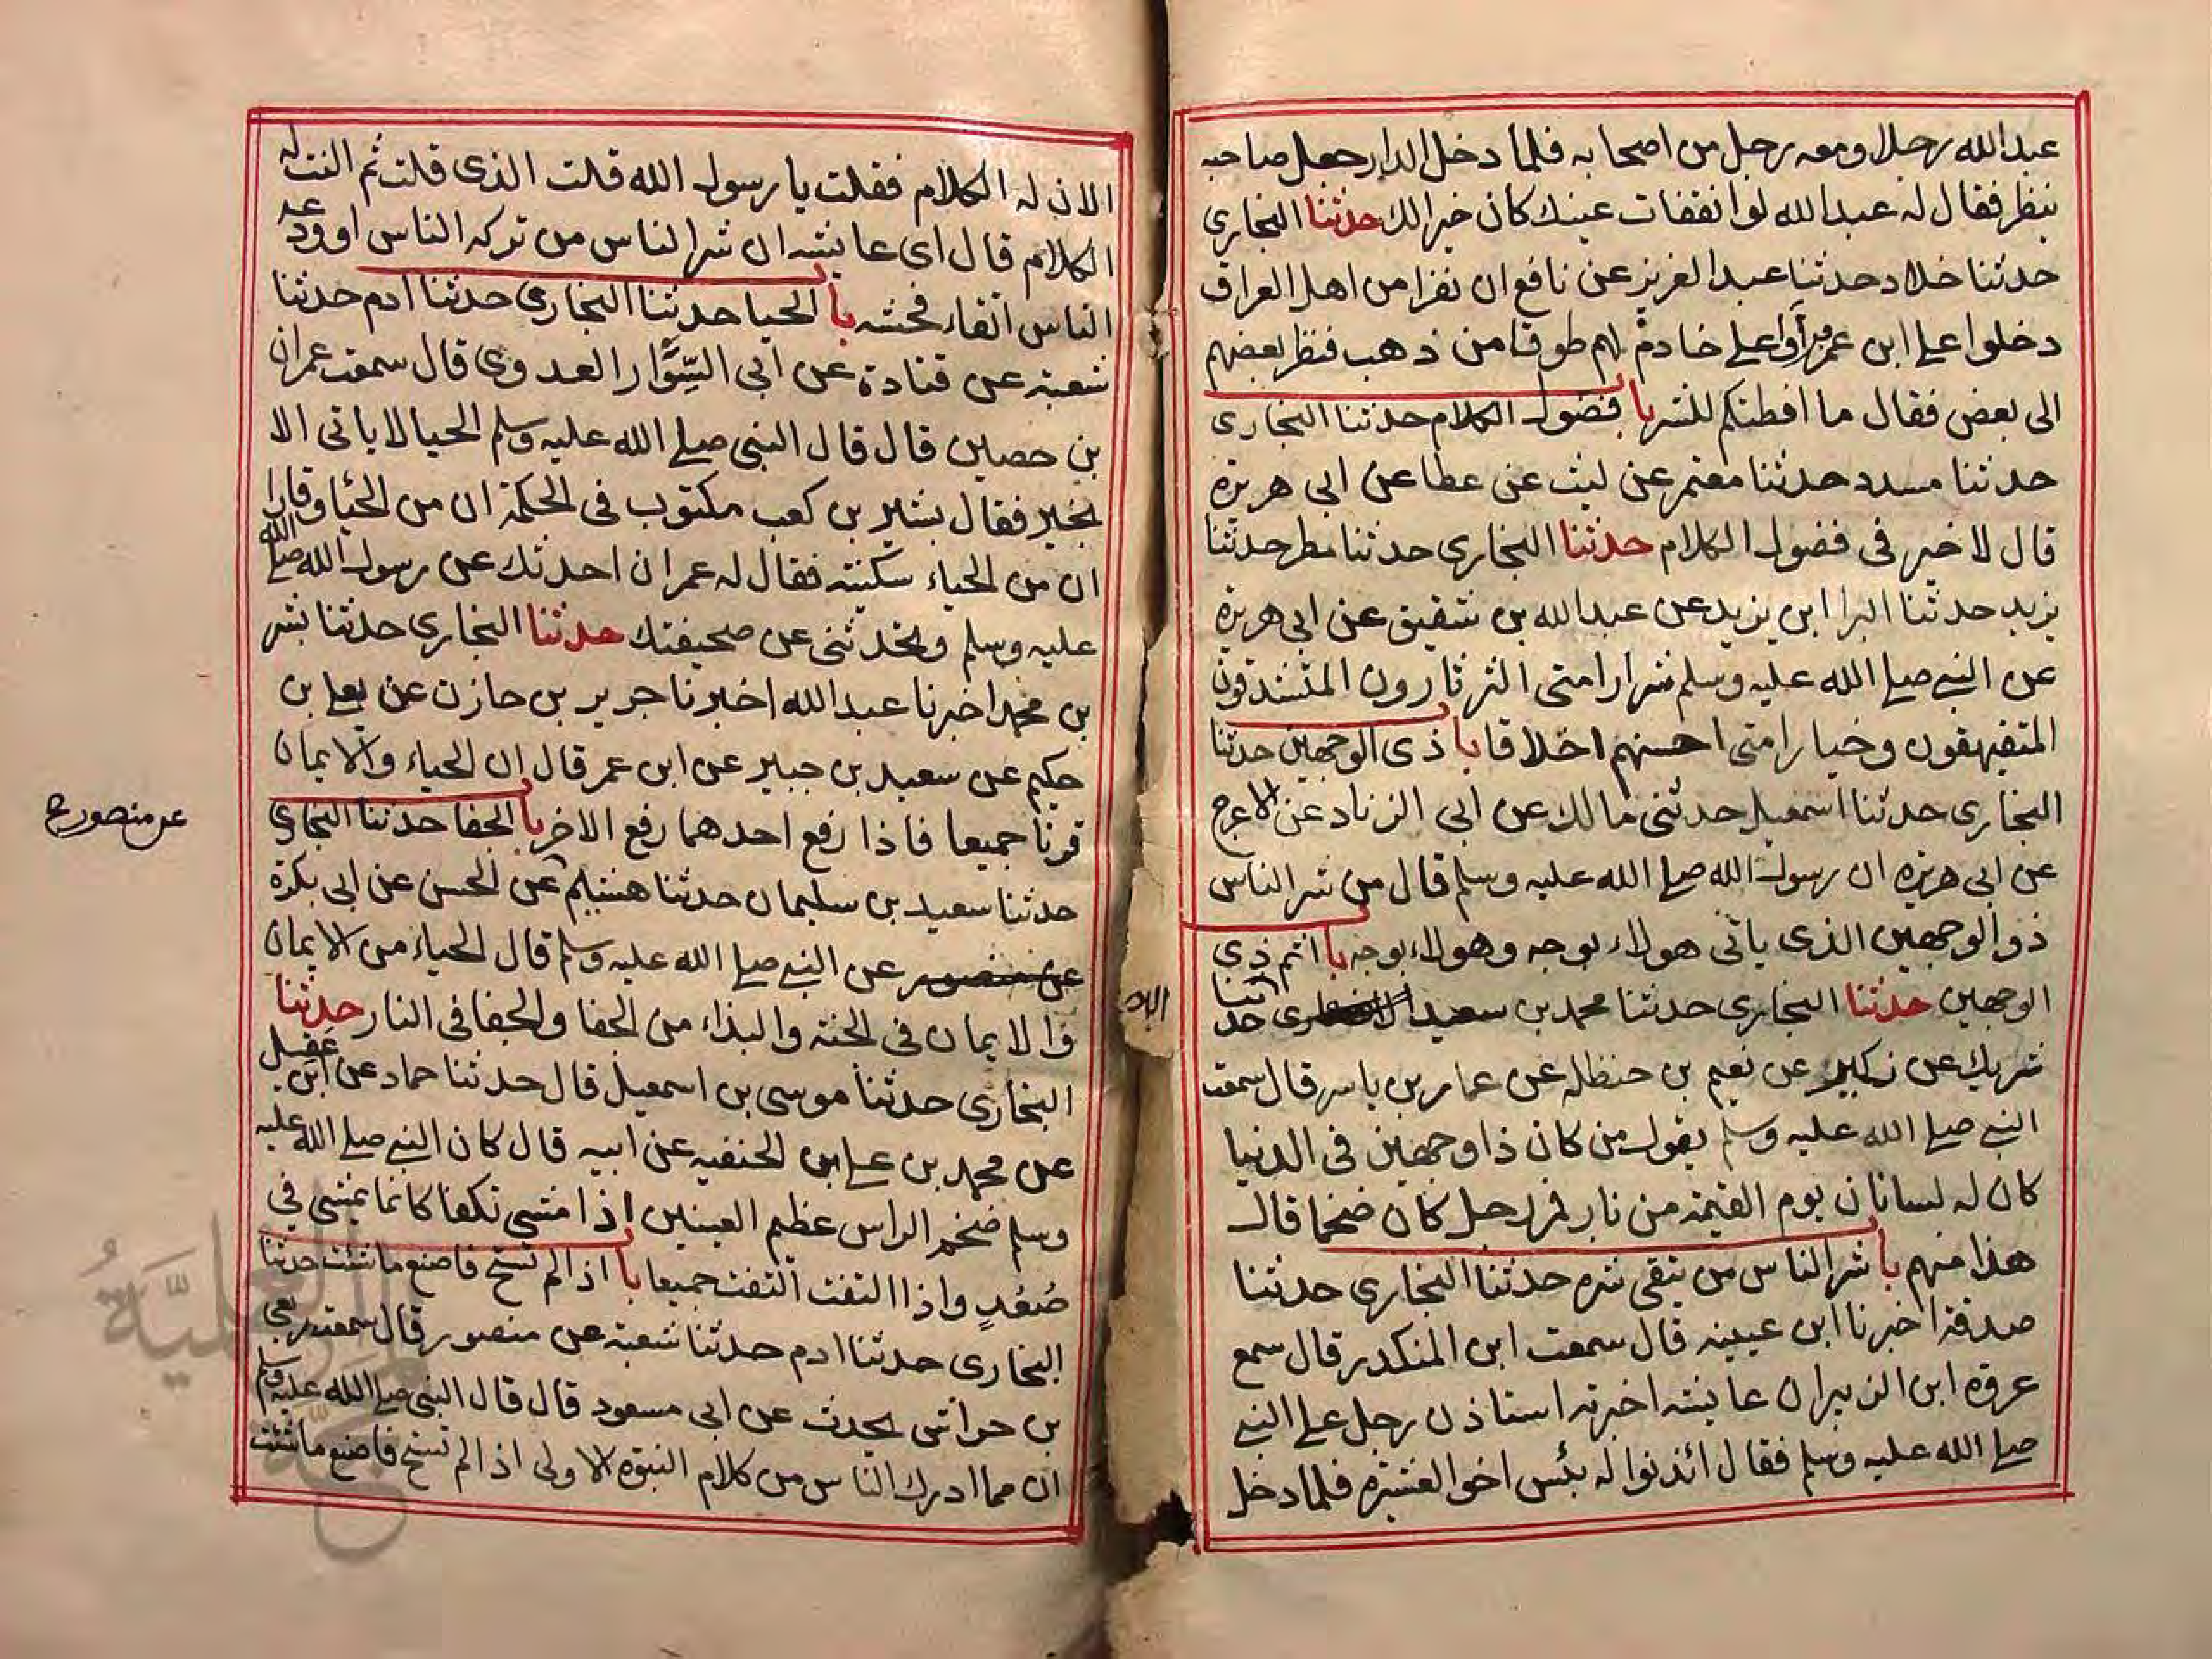 عبد الله رجلا ومعه رجل من اصحابه فلما دخل الدار جعل صاحبه
ينظر فقال له عبد الله لو انفقات عينك كان خيرا لك حدثنا البخاري
حدثنا خلاد حدثنا عبد العزيز عن نافع ان نفرا من اهل العراق
دخلوا على ابن عمر فرأوا على خادم لهم طوقا من ذهب فنظر بعضهم
الى بعض فقال ما افطنكم للشر با فضول الكلام حدثنا البخاري
حدثنا مسدد حدثنا معتمر عن ليث عن عطا عن ابى هريرة
قال لا خير فى فضول الكلام حدثنا البخارى حدثنا مطر حدثنا
يزيد حدثنا البرا ابن يزيد عن عبد الله بن شقيق عن ابى هريرة
عن النبي صلى الله عليه وسلم شرار امتى الثرثارون المتشدقون
المتفيهقون وخيار امتى احسنهم اخلاقا با ذى الوجهين حدثنا
البخارى حدثنا اسمعيل حدثنى مالك عن ابى الزناد عن الاعرج
عن ابى هريرة ان رسول الله صلى الله عليه وسلم قال من شر الناس
ذو الوجهين الذى ياتى هولاء بوجه وهولاء بوجه با اثم ذى
الوجهين حدثنا البخارى حدثنا محمد بن سعيد حدثنا
شريك عن ركين عن نعيم بن حنظله عن عمار بن ياسر قال سمعت
النبي صلى الله عليه وسلم يقول من كان ذا وجهين فى الدنيا
كان له لسانان يوم القيمة من نار فمر رجل كان ضخما قال
هذا منهم با شر الناس من يتقى شره حدثنا البخارى حدثنا
صدقة اخبرنا ابن عيينه قال سمعت ابن المنكدر قال سمع
عروة ابن الزبير ان عايشه اخبرته استاذن رجل على النبي
صلى الله عليه وسلم فقال ائذنوا له بئس اخو العشيرة فلما دخل
الان له الكلام فقلت يا رسول الله قلت الذى قلت ثم النت له
الكلام قال اى عايشه ان شر الناس من تركه الناس او ودعه
الناس اتقاء فحشه با الحيا حدثنا البخارى حدثنا ادم حدثنا
شعبة عن قتادة عن ابى السَّوَّار العدوى قال سمعت عمران
بن حصين قال قال النبى صلى الله عليه وسلم الحيا لا ياتى الا
بخير فقال بشير بن كعب مكتوب فى الحكمة ان من الحيا وقارا
ان من الحياء سكينة فقال له عمران احدثك عن رسول الله صلى الله
عليه وسلم وتحدثنى عن صحيفتك حدثنا البخارى حدثنا بشر
بن محمد اخبرنا عبد الله اخبرنا جرير بن حازن عن يعلى بن
حكيم عن سعيد بن جبير عن ابن عمر قال ان الحياء والايمان
قرنا جميعا فاذا رفع احدهما رفع الاخر با الجفا حدثنا البخارى
حدثنا سعيد بن سليمان حدثنا هشيم عن الحسن عن ابى بكرة
عن منصور عن النبي صلى الله عليه وسلم قال الحياء من الايمان
والايمان فى الجنة والبذاء من الجفا والجفا فى النار حدثنا
البخارى حدثنا موسى بن اسمعيل قال حدثنا حماد عن ابن عقيل
عن محمد بن على ابن الحنفيه عن ابيه قال كان النبي صلى الله عليه
وسلم ضخم الراس عظيم العينين اذا مشى تكفا كانما يمشى فى
صُعُدٍ واذا التفت التفت جميعا با اذا لم تستح فاصنع ما شئت حدثنا
البخارى حدثنا ادم حدثنا شعبة عن منصور قال سمعت ربعى
بن حراش يحدث عن ابى مسعود قال قال النبى صلى الله عليه وسلم
ان مما ادرك الناس من كلام النبوة الاولى اذا لم تستح فاصنع ما شئت
عن منصور ح
الان